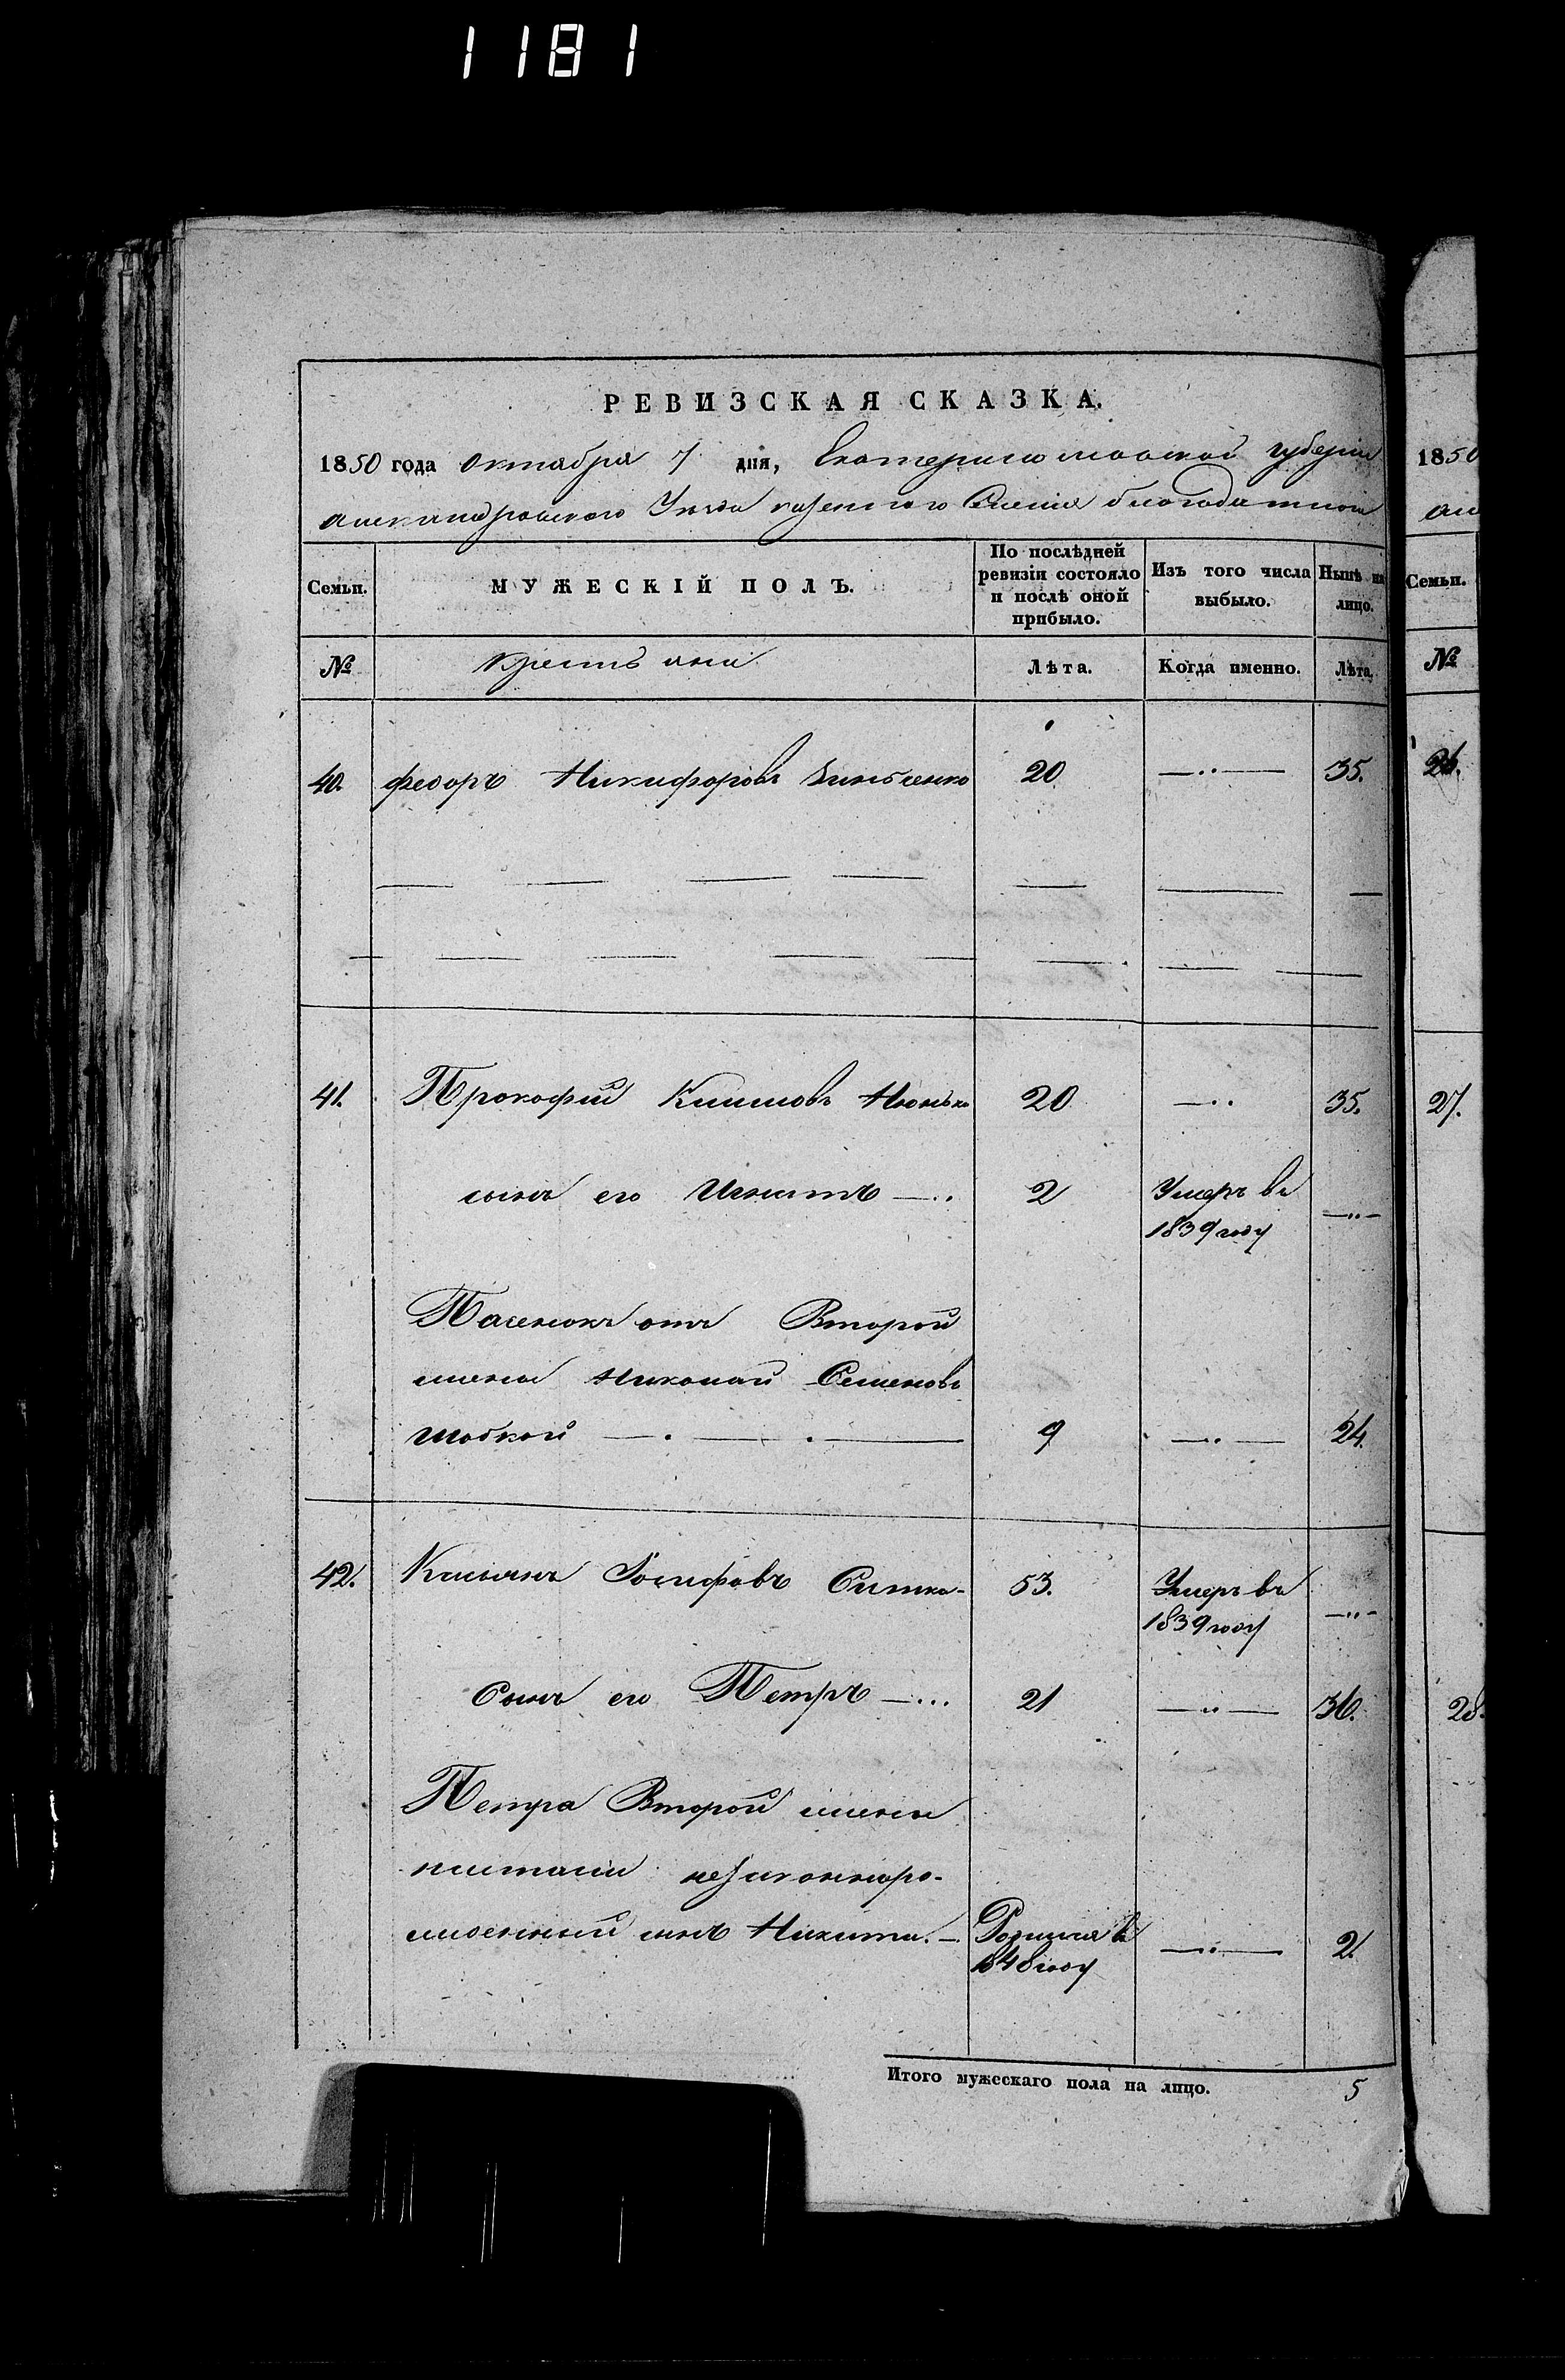 1181
РЕВИЗСКАЯ СКАЗКА.
1850 года октября 7 дня, Екатеринославской губернии
александровского Уезда казенного Селения благодатной
Семьи.
МУЖЕСКІЙ ПОЛЪ.
По послѣдней ревизіи состояло и послѣ оной прибыло.
Изъ того числа выбыло.
Нынѣ на лицо.
№ крестьяне Лѣта. Когда именно. Лѣта.
40. федоръ Никифоровъ 20 —..— 35.
41. Прокофий Климовъ Нюнько 20 —.. 35.
сынъ его Игнатъ —.. 2 Умеръ въ 1839 году —..—
Пасенокъ отъ Второй
жены Николай Семеновъ
Шобкой 9 —..— 24.
42. Касьянъ Іосифовъ Ситко 53. Умеръ въ 1839 году —..—
Сынъ его Петръ —... 21 —..— 36.
Петра Второй жены
незаконноро-
жденный сынъ Никита. — Родился в 1848 году —..— 2.
Итого мужескаго пола на лицо. 5
1850
Семьи.
№
26.
27.
28.